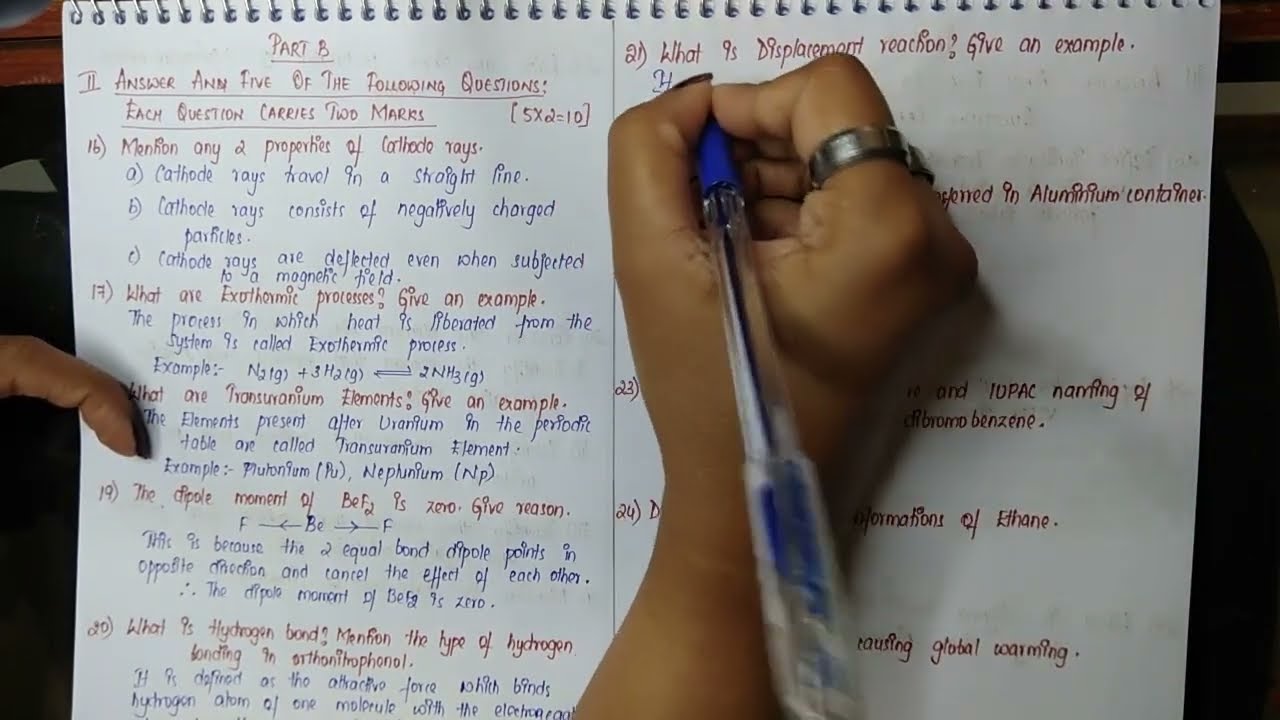 PART B
II ANSWER ANY FIVE OF THE FOLLOWING QUESTIONS:
EACH QUESTION CARRIES TWO MARKS [5X2=10]
16) Mention any 2 properties of Cathode rays.
a) Cathode rays travel in a straight line.
b) Cathode rays consists of negatively charged
particles.
c) Cathode rays are deflected even when subjected
to a magnetic field.
17) What are Exothermic processes? Give an example.
The process in which heat is liberated from the
system is called Exothermic process.
Example:- N2(g) + 3H2(g) ⇌ 2NH3(g)
What are Transuranium Elements? Give an example.
The Elements present after Uranium in the periodic
table are called Transuranium Element.
Example:- Plutonium (Pu), Neptunium (Np)
19) The dipole moment of BeF2 is zero. Give reason.
F ←Be→ F
This is because the 2 equal bond dipole points in
opposite direction and cancel the effect of each other.
∴ The dipole moment of BeF2 is zero.
20) What is Hydrogen bond? Mention the type of hydrogen
bonding in orthonitrophenol.
It is defined as the attractive force which binds
hydrogen atom of one molecule with the
21) What is Displacement reaction? Give an example.
It
in Aluminium container.
23) and IUPAC naming of
dibromo benzene.
24) of Ethane.
causing global warming.